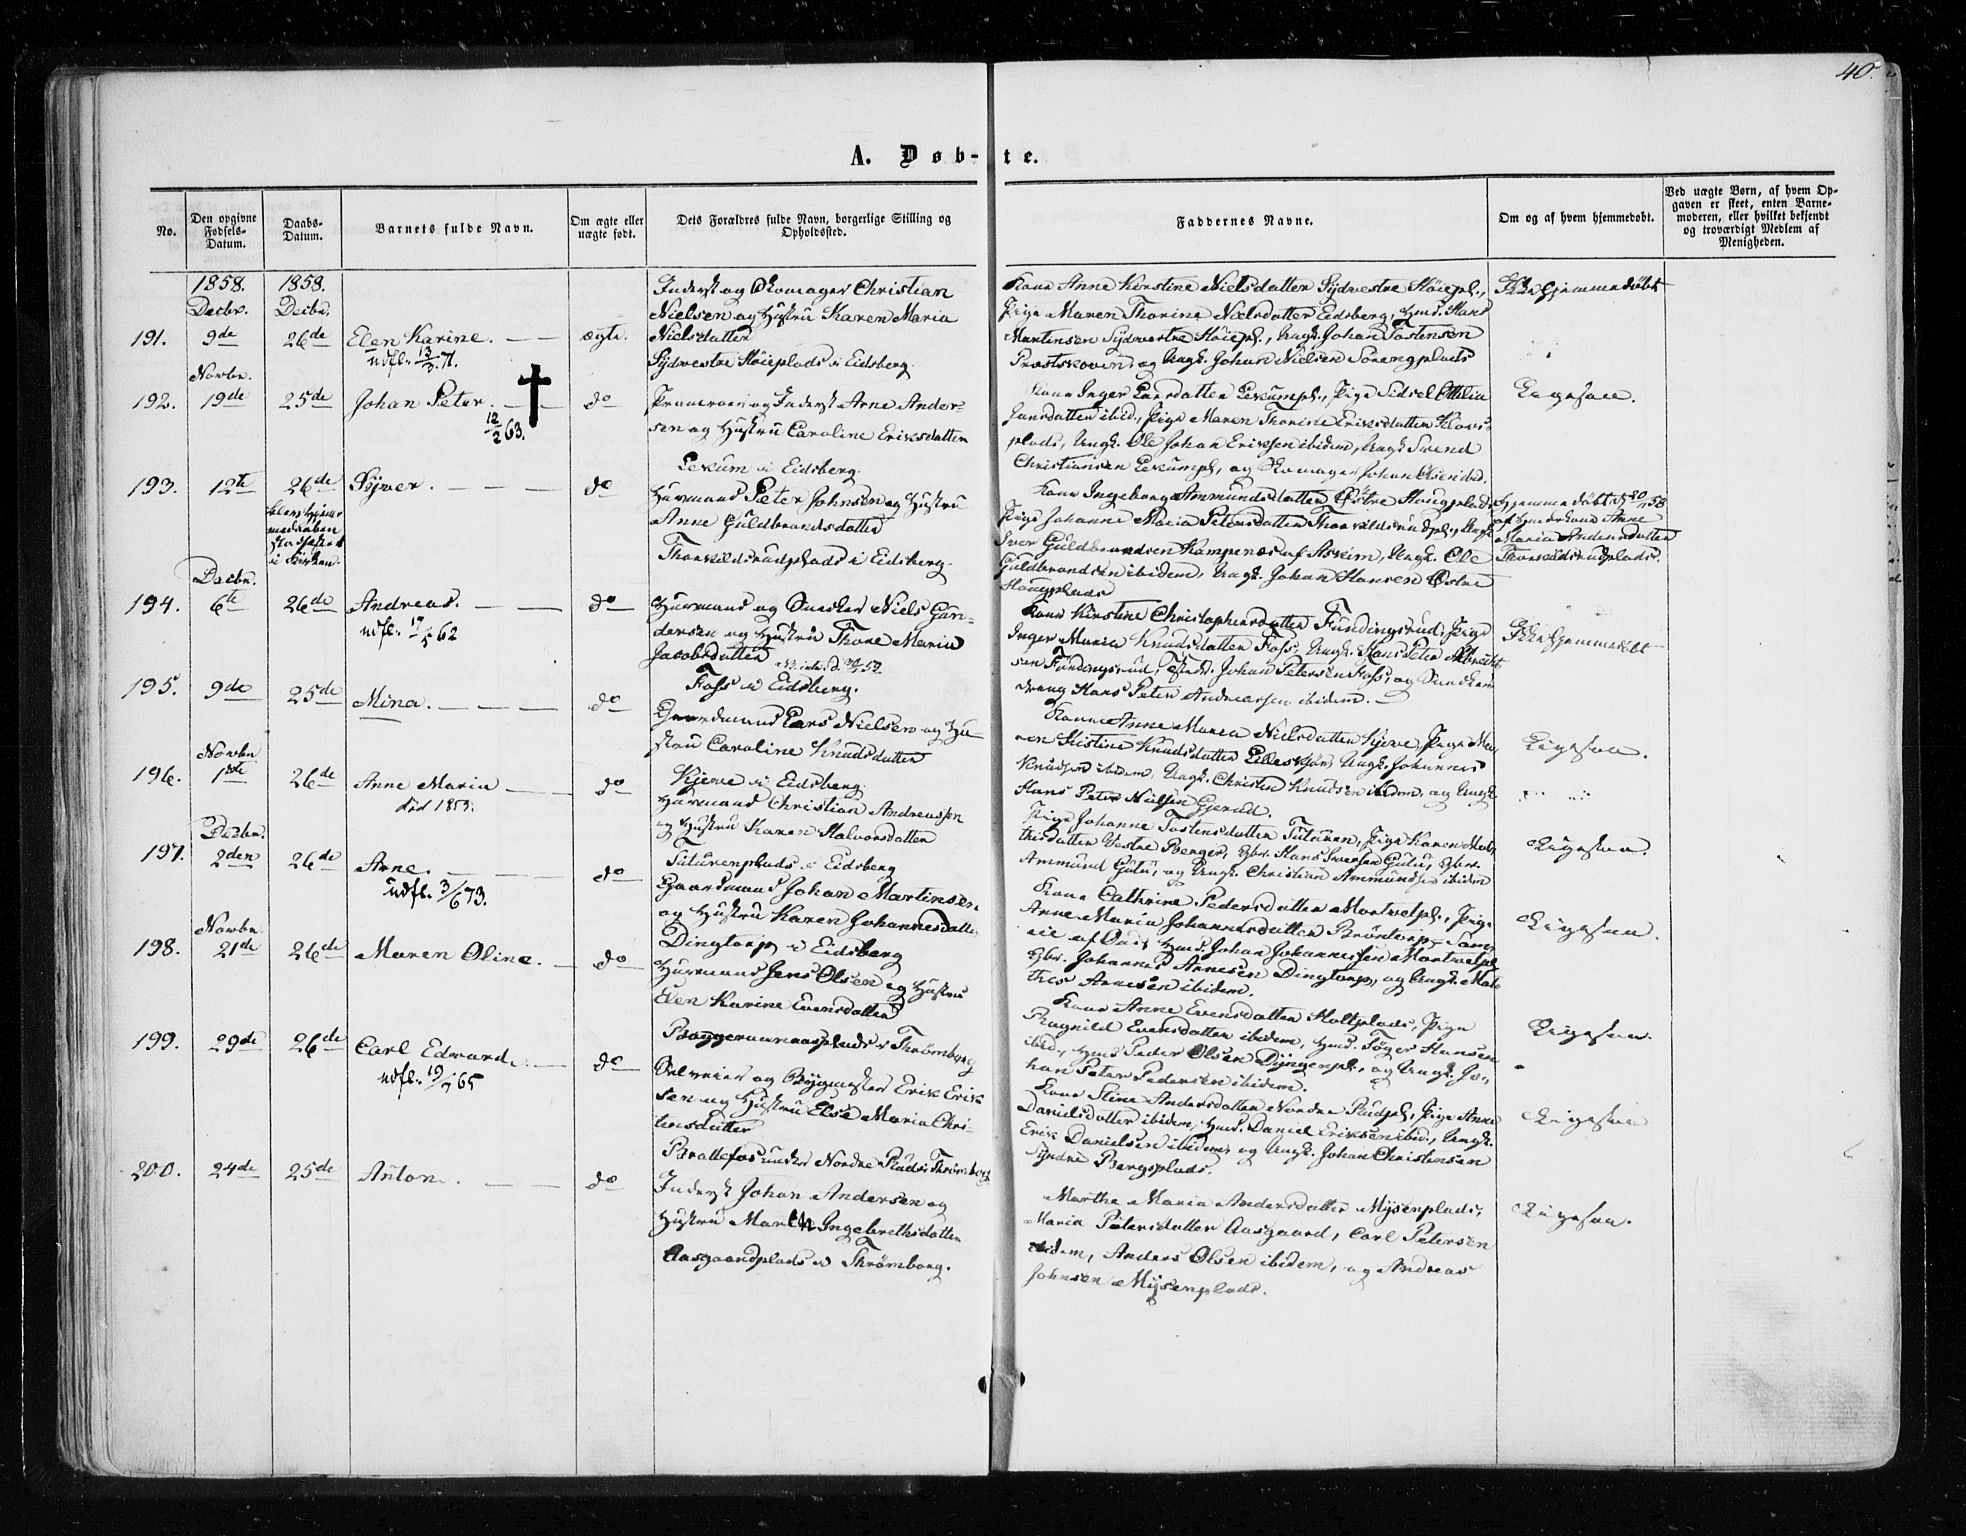 40.
A. Døb-te.
No.
Den opgivne Fødsels-Datum.
Daabs-Datum.
Barnets fulde Navn.
Om ægte eller uægte født.
Dets Forældres fulde Navn, borgerlige Stilling og Opholdssted.
Faddernes Navne.
Om og af hvem hjemmedøbt.
Ved uægte Børn, af hvem Opgaven er skeet, enten Barnemoderen, eller hvilket bekjendt og troværdigt Medlem af Menigheden.
1858. 1858.
Decbr. Decbr.
191. 9de 26de Elen Karine. ægte.
udfl. 13/3 71.
Inderst og Skomager Christian
Nielsen og Hustru Karen Maria
Nielsdatter
Sydvestre Høieplads i Eidsberg.
Kone Anne Kirstine Nielsdatter Sydvestre Høiepl.,
Pige Maren Thorine Nielsdatter Eidsberg, Hmd. Hans
Martinsen Sydvestre Høiepl., Ungk. Johan Tostensen
Præstskoven og Ungk. Johan Nielsen Sorengplads
Ikke hjemmedøbt
Novbr.
192. 19de 25de Johan Peter. do
12/2 63.
og Inderst Arne Ander-
sen og Hustru Caroline Eriksdatter
Lekum i Eidsberg.
Kone Inger Larsdatter Lekumpl., Pige Sidsel Ottilia
Hansdatter ibid, Pige Maren Thorine Eriksdatter
plads, Ungk. Ole Johan Eriksen ibidem, Ungk. Svend
Christiansen Lekumpl, og Skomager Johan Olsen ibid.
Ligesaa.
193. 12te 26de Syver. do
i Kirken.
Huusmand Peter Johnsen og Hustru
Anne Guldbrandsdatter
Thorkildsrudplads i Eidsberg.
Kone Ingeborg Ammundsdatter Østre Hougplads,
Pige Johanne Maria Petersdatter Thorkildsrudpl., Ungk.
Iver Guldbrandsen Kampenæs af Askim, Ungk. Ole
Guldbrandsen ibidem, Ungk. Johan Hansen Østre
Hougplads
Hjemmedøbt 20/11 58
Anne
Maria Andersdatter
Thorkildsrudplads.
Decbr.
194. 6te 26de Andreas. do
udfl. 19/5 62
Huusmand og Snedker Niels Gun-
dersen og Hustru Thore Maria
Jacobsdatter
Foss i Eidsberg.
Kone Kirstine Christophersdatter Fundingsrud, Pige
Inger Maria Knudsdatter Foss, Ungk. Hans Peter Albrecht-
sen Fundingsrud, Johan Petersen Foss, og
dreng Hans Peter Andreassen ibidem.
Ikke hjemmedøbt
195. 9de 25de Mina. do
Gaardmand Lars Nielsen og Hu-
stru Caroline Knudsdatter
Kjeve i Eidsberg.
Kone Anne Maria Nielsdatter Kjeve, Pige Ma-
ren Kistine Knudsdatter, Ungk. Johannes
Knudsen ibidem, Ungk. Christen Knudsen ibidem, og Ungk.
Hans Peter Nielsen Gjerud.
Ligesaa.
Novbr.
196. 1ste 26de Anne Maria do
død 1859.
Huusmand Christian Andreassen
og Hustru Karen Halvorsdatter
Tuturenplads i Eidsberg
Pige Johanne Tostensdatter Tuturen, Pige Karen Mat-
thisdatter Vestre Berger, Gbr. Hans Svensen Gulu, Gbr.
Ammund Gulu, og Ungk. Christian Ammundsen ibidem
Ligesaa.
Decbr.
197. 2den 26de Arne. do
udfl. 3/6 73.
Gaardmand Johan Martinsen
og Hustru Karen Johannesdatter
Dingtorp i Eidsberg
Kone Cathrine Pedersdatter Mortvetpl., Pige
Anne Maria Johannesdatter Brøntorp
Hmd. Johan Johannessen Mortvetpl
Gbr. Johannes Arnesen Dingtorp, og Ungk. Mat-
thes Arnesen ibidem.
Ligesaa.
Novbr
198. 21de 26de Maren Oline. do
Huusmand Jens Olsen og Hustru
Elen Karine Evensdatter
i Thrømborg
Kone Anne Evensdatter Holtplads, Pige
Ragnild Evensdatter ibidem, Hmd. Tøger Hansen
ibid, Hmd Peder Olsen, og Ungk. Jo-
han Peter Pedersen ibidem.
Ligesaa.
199. 29de 26de Carl Edvard. do
udfl. 19/7 65
Selveier og Bygmester Erik Erik-
sen og Hustru Else Maria Chri-
stensdatter
Brattefos under Nordre Rud i Thrømborg
Kone Stine Andersdatter Nordre Rudpl, Pige Anne
Danielsdatter ibidem, Hmd. Daniel Eriksen ibid., Ungk.
Erik Danielsen ibidem, og Ungk. Johan Christensen
Syndre Bergsplads.
Ligesaa
200. 24de 25de Anton. do
Inderst Johan Andersen og
Hustru Maren Ingebrethsdatter
Aasgaardplads i Thrømborg.
Marthe Maria Andersdatter Mysenplads,
Maria Petersdatter Aasgaard, Carl Petersen
ibidem, Anders Olsen ibidem, og Andreas
Johnsen Mysenplads.
Ligesaa.